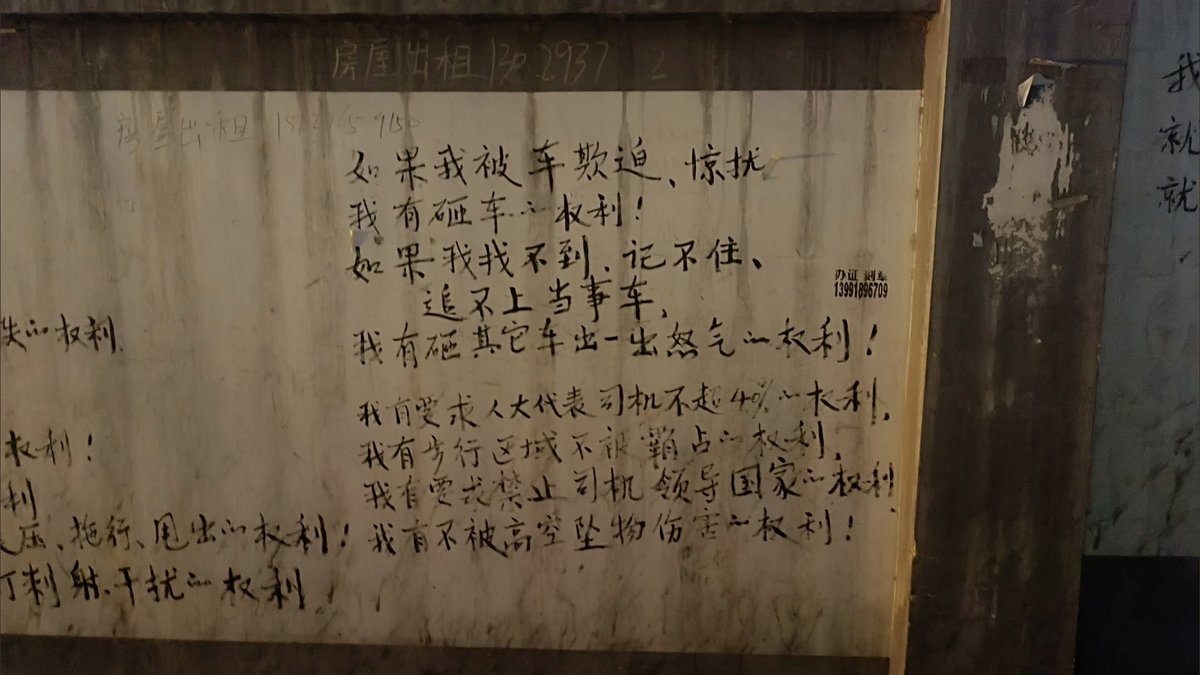 房屋出租130 2937 2
房屋出租 15 9150
如果我被车欺迫、惊扰
我有砸车的权利!
如果我找不到、记不住、
追不上当事车,
我有砸其它车出一出怒气的权利!
办证 刻章
13991896709
我有要求人大代表司机不超40%的权利,
我有步行区域不被霸占的权利,
我有要求禁止司机领导国家的权利,
我有不被高空坠物伤害的权利!
的权利
权利!
利
压、拖行、甩出的权利!
刺射、干扰的权利
我
就
就